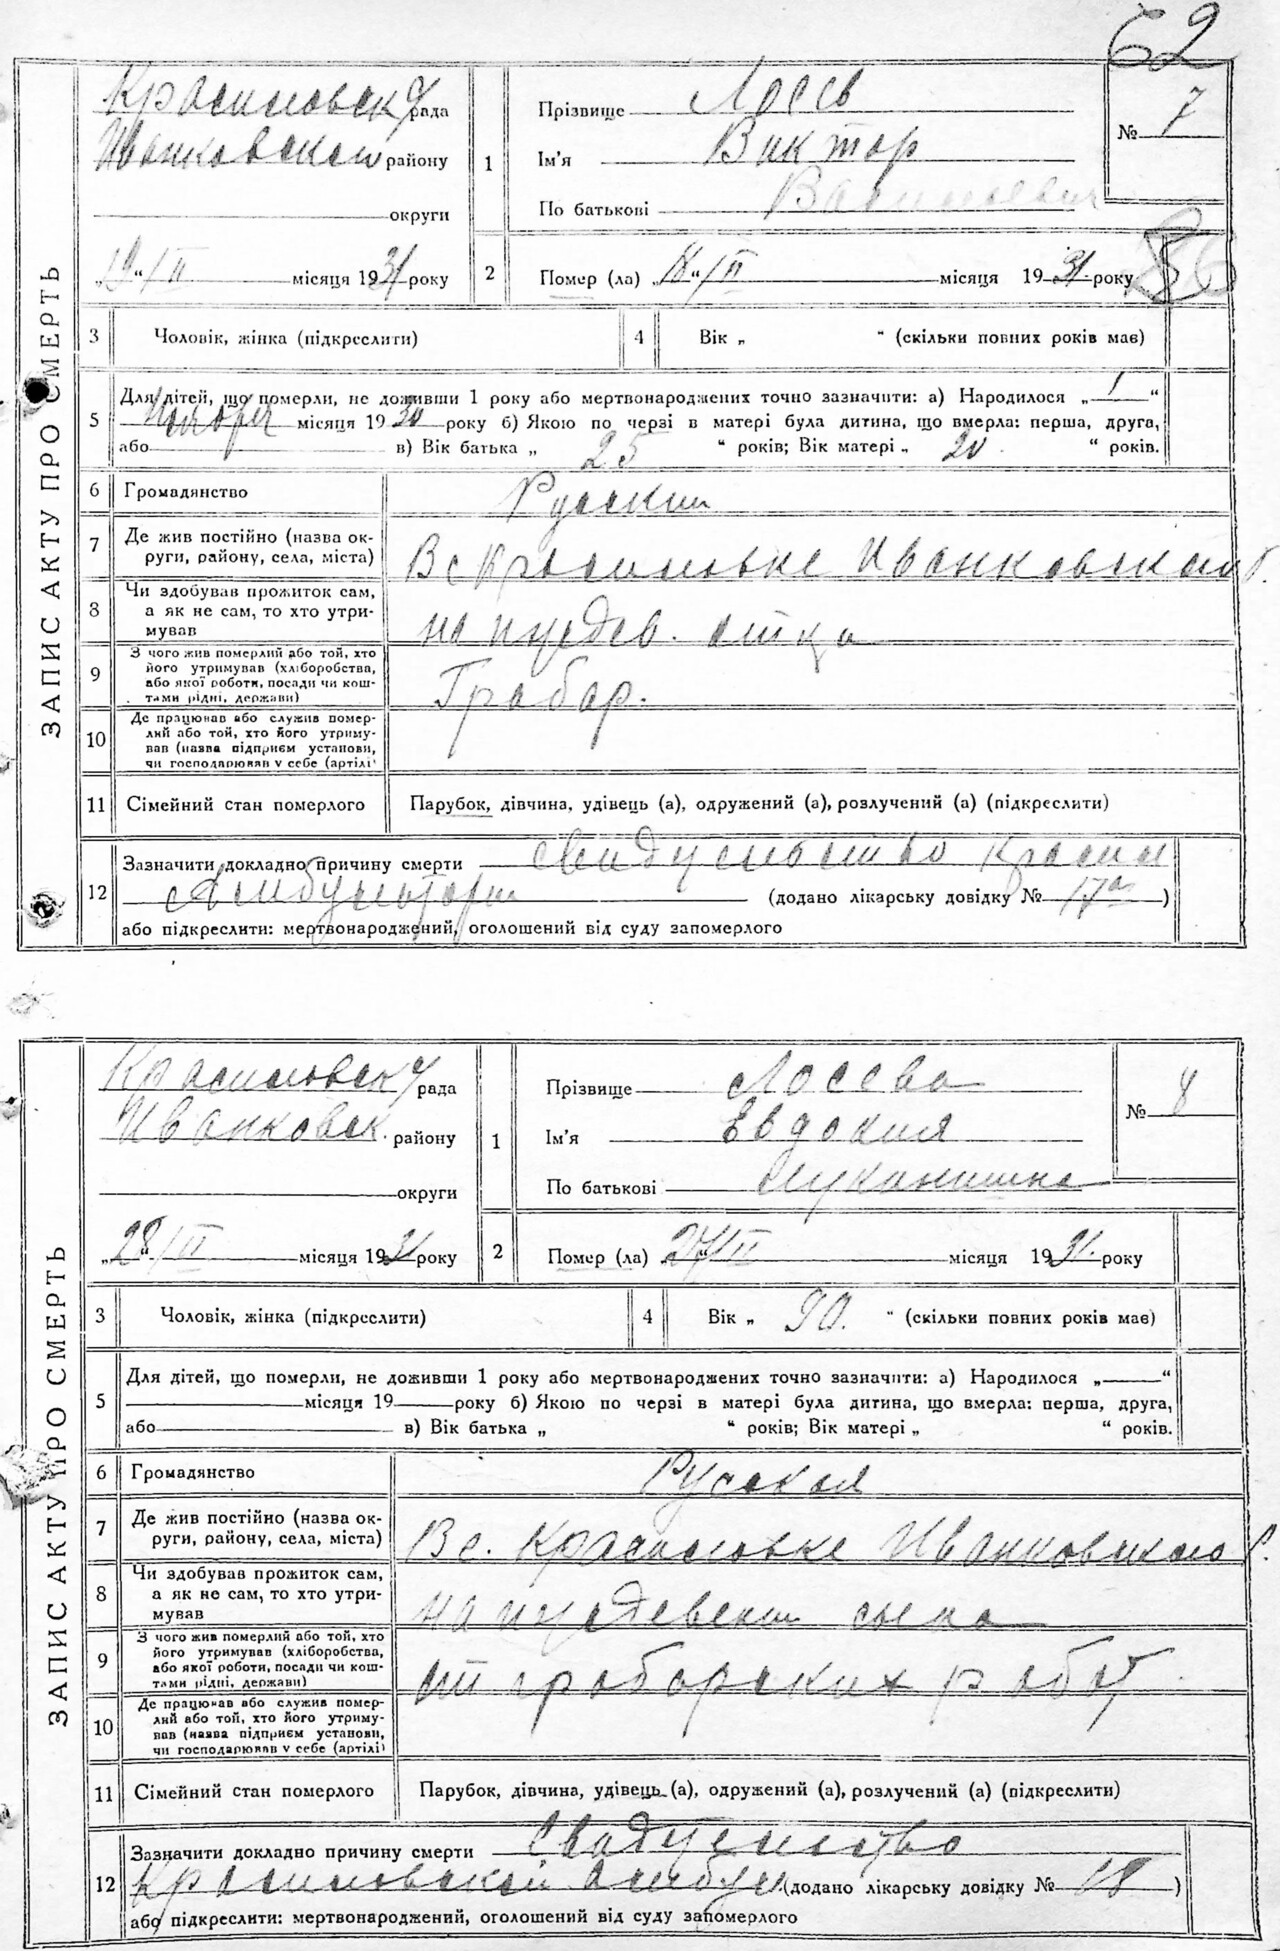 62
ЗАПИС АКТУ ПРО СМЕРТЬ
Красиловск рада
Иванковского району
округи
„19“/II місяця 1931 року
1
Прізвище Лосев
Ім'я Виктор
По батькові Васильевич
№ 7
2
Помер (ла) „18“/II місяця 1931 року
86
3
Чоловік, жінка (підкреслити)
4
Вік „ “ (скільки повних років має)
5
Для дітей, що померли, не доживши 1 року або мертвонароджених точно зазначити: а) Народилося „1“
Ноября місяця 1930 року б) Якою по черзі в матері була дитина, що вмерла: перша, друга,
або в) Вік батька „ 25 “ років; Вік матері „ 20 “ років.
6
Громадянство
Русский
7
Де жив постійно (назва ок-
руги, район, села, міста)
В с Красиловке Иванковского р.
8
Чи здобував прожиток сам,
а як не сам, то хто утри-
мував
на иждев. отца
9
З чого жив померлий або той, хто
його утримував (хліборобства,
або якої роботи, посади чи кош-
тами рідні, держави)
Грабар.
10
Де працював або служив помер-
лий або той, хто його утриму-
вав (назва підприєм установи,
чи господарював у себе (артілі)
11
Сімейний стан померлого
Парубок, дівчина, удівець (а), одружений (а), розлучений (а) (підкреслити)
12
Зазначити докладно причину смерти свидетельство Красил
Амбулатории (додано лікарську довідку № 17 )
або підкреслити: мертвонароджений, оголошений від суду запомерлого
ЗАПИС АКТУ ПРО СМЕРТЬ
Красиловск рада
Иванковск. району
округи
„28“/II місяця 1931 року
1
Прізвище Лосева
Ім'я Евдокия
По батькові
№ 8
2
Помер (ла) „27“/II місяця 1931. року
3
Чоловік, жінка (підкреслити)
4
Вік „ 90. “ (скільки повних років має)
5
Для дітей, що померли, не доживши 1 року або мертвонароджених точно зазначити: а) Народилося „ “
місяця 19 року б) Якою по черзі в матері була дитина, що вмерла: перша, друга,
або в) Вік батька „ “ років; Вік матері „ “ років.
6
Громадянство
Русская
7
Де жив постійно (назва ок-
руги, району, села, міста)
В с. Красиловке Иванковского р.
8
Чи здобував прожиток сам,
а як не сам, то хто утри-
мував
на иждевении сына
9
З чого жив померлий або той, хто
його утримував (хліборобства,
або якої роботи, посади чи кош-
тами рідні, держави)
от грабарских работ
10
Де працював або служив помер-
лий або той, хто його утриму-
вав (назва підприєм установи,
чи господарював у себе (артілі)
11
Сімейний стан померлого
Парубок, дівчина, удівець (а), одружений (а), розлучений (а) (підкреслити)
12
Зазначити докладно причину смерти Свидетельство
Красиловской амбул (додано лікарську довідку № 18 )
або підкреслити: мертвонароджений, оголошений від суду запомерлого